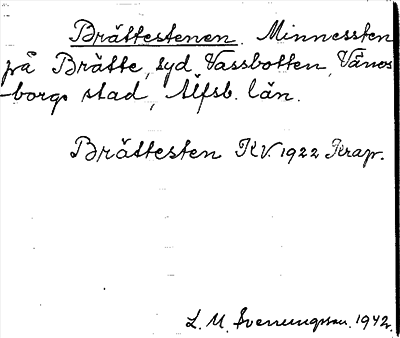 Brättestenen. Minnessten
på Brätte, syd. Vassbotten, Väners-
borgs stad, Älfsb. län.
Brättesten KV. 1922 Krap.
L. M. Svenungsson. 1942.